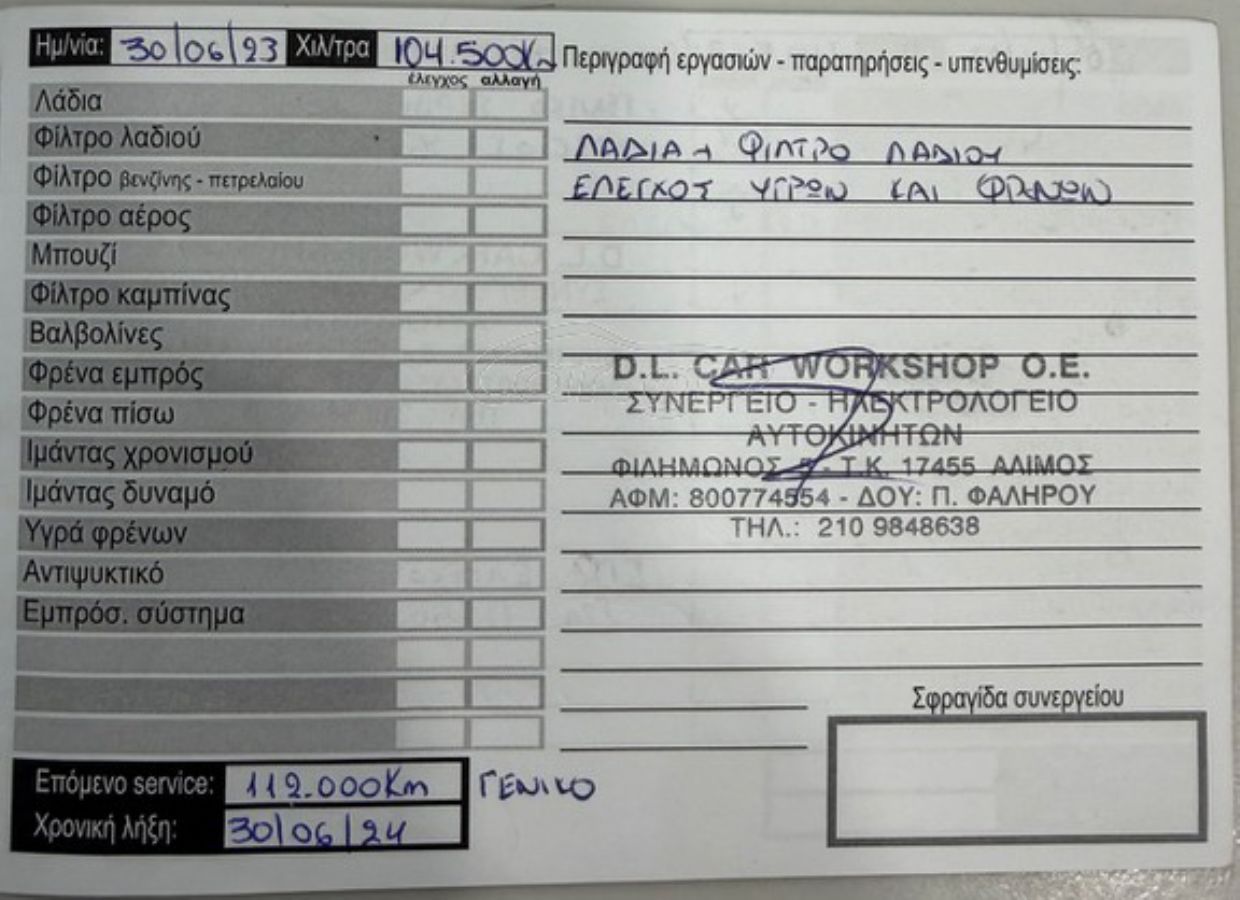 Ημ/νία: 30/06/23 Χιλ/τρα 104.500Km Περιγραφή εργασιών - παρατηρήσεις - υπενθυμίσεις:
έλεγχος αλλαγή
Λάδια
Φίλτρο λαδιού
ΛΑΔΙΑ + ΦΙΛΤΡΟ ΛΑΔΙΟΥ
Φίλτρο βενζίνης - πετρελαίου
ΕΛΕΓΧΟΣ ΥΓΡΩΝ ΚΑΙ ΦΡΕΝΩΝ
Φίλτρο αέρος
Μπουζί
Φίλτρο καμπίνας
Βαλβολίνες
Φρένα εμπρός
Φρένα πίσω
Ιμάντας χρονισμού
Ιμάντας δυναμό
Υγρά φρένων
Αντιψυκτικό
Εμπρόσ. σύστημα
D.L. CAR WORKSHOP O.E.
ΣΥΝΕΡΓΕΙΟ - ΗΛΕΚΤΡΟΛΟΓΕΙΟ
ΑΥΤΟΚΙΝΗΤΩΝ
ΦΙΛΗΜΩΝΟΣ - Τ.Κ. 17455 ΑΛΙΜΟΣ
ΑΦΜ: 800774554 - ΔΟΥ: Π. ΦΑΛΗΡΟΥ
ΤΗΛ.: 210 9848638
Σφραγίδα συνεργείου
Επόμενο service: 112.000Km ΓΕΝΙΚΟ
Χρονική λήξη: 30/06/24